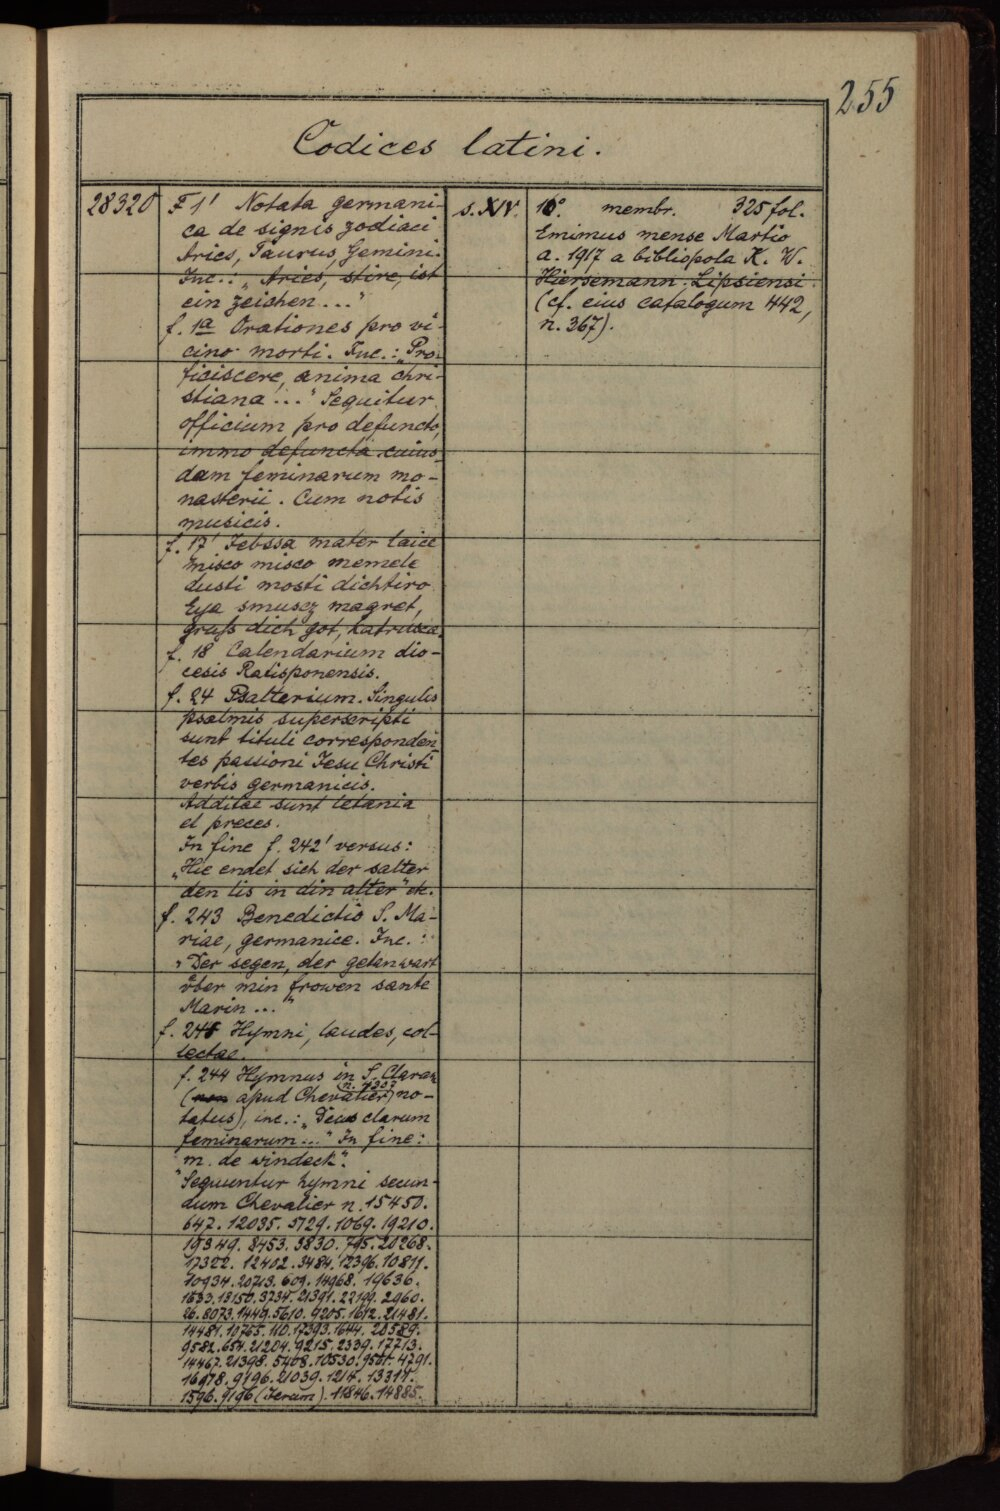 255
Codices latini.
28320
F 1' Notata germani-
ca de signis zodiaci
Aries, Taurus, Gemini.
Inc.: „Aries, stire, ist
ein zeichen..."
f. 1a Orationes pro vi-
cino morti. Inc.: „Pro-
ficiscere, anima chri-
stiana..." Sequitur
officium pro defuncto,
immo defuncta cuius-
dam feminarum mo-
nasterii. Cum notis
musicis.
f. 17' Jebssa mater laice
misco misco memele
dusti mosti dichtiro
Eya smusez magret,
gruß dich got, katrusca.
f. 18 Calendarium dio-
cesis Ratisponensis.
f. 24 Psalterium. Singulis
psalmis superscripti
sunt tituli corresponden-
tes passioni Jesu Christi
verbis germanicis.
Additae sunt letania
et preces.
In fine f. 242' versus:
„Hie endet sich der salter
den lis in din alter" etc.
f. 243 Benedictio S. Ma-
riae, germanice. Inc.:
„Der segen, der getan wart
über min frowen sante
Marin..."
f. 245 Hymni, laudes, col-
lectae.
f. 244 Hymnus in S. Claram
(apud Chevalier no-
tatus), inc.: „Deus clarum
feminarum..." In fine:
„m. de windeck".
Sequuntur hymni secun-
dum Chevalier n. 15450.
647. 12035. 5729. 1069. 19210.
19349. 8453. 3830. 795. 20268.
17322. 12402. 3484. 12396. 10811.
10934. 20713. 609. 14968. 19636.
1833. 18150. 3734. 21391. 22199. 2960.
26. 8073. 1449. 5610. 9205. 1612. 21481.
14481. 10765. 110. 17393. 1644. 20589.
9582. 654. 21204. 9215. 2339. 17713.
14467. 21398. 5408. 10530. 9561. 4791.
16978. 9196. 21039. 1214. 13311.
1596. 9196 (Iterum). 11846. 14885.
s. XIV.
16°. membr. 325 fol.
Emimus mense Martio
a. 1917 a bibliopola K. W.
Hiersemann Lipsiensi
(cf. eius catalogum 442,
n. 367).